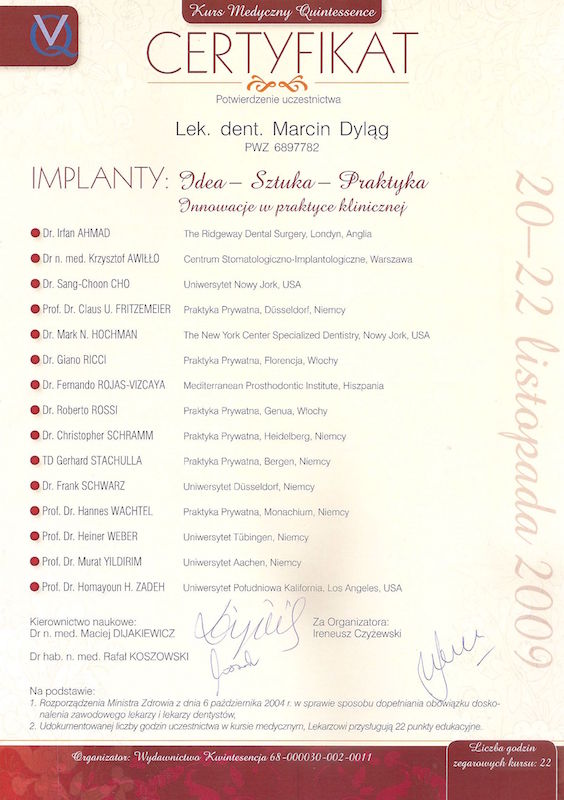 Kurs Medyczny Quintessence
VQ
CERTYFIKAT
Potwierdzenie uczestnictwa
Lek. dent. Marcin Dyląg
PWZ 6897782
IMPLANTY: Idea – Sztuka – Praktyka
Innowacje w praktyce klinicznej
Dr. Irfan AHMAD The Ridgeway Dental Surgery, Londyn, Anglia
Dr n. med. Krzysztof AWIŁŁO Centrum Stomatologiczno-Implantologiczne, Warszawa
Dr. Sang-Choon CHO Uniwersytet Nowy Jork, USA
Prof. Dr. Claus U. FRITZEMEIER Praktyka Prywatna, Düsseldorf, Niemcy
Dr. Mark N. HOCHMAN The New York Center Specialized Dentistry, Nowy Jork, USA
Dr. Giano RICCI Praktyka Prywatna, Florencja, Włochy
Dr. Fernando ROJAS-VIZCAYA Mediterranean Prosthodontic Institute, Hiszpania
Dr. Roberto ROSSI Praktyka Prywatna, Genua, Włochy
Dr. Christopher SCHRAMM Praktyka Prywatna, Heidelberg, Niemcy
TD Gerhard STACHULLA Praktyka Prywatna, Bergen, Niemcy
Dr. Frank SCHWARZ Uniwersytet Düsseldorf, Niemcy
Prof. Dr. Hannes WACHTEL Praktyka Prywatna, Monachium, Niemcy
Prof. Dr. Heiner WEBER Uniwersytet Tübingen, Niemcy
Prof. Dr. Murat YILDIRIM Uniwersytet Aachen, Niemcy
Prof. Dr. Homayoun H. ZADEH Uniwersytet Południowa Kalifornia, Los Angeles, USA
20–22 listopada 2009
Kierownictwo naukowe:
Dr n. med. Maciej DIJAKIEWICZ
Dr hab. n. med. Rafał KOSZOWSKI
Za Organizatora:
Ireneusz Czyżewski
Na podstawie:
1. Rozporządzenia Ministra Zdrowia z dnia 6 października 2004 r. w sprawie sposobu dopełniania obowiązku dosko-
nalenia zawodowego lekarzy i lekarzy dentystów,
2. Udokumentowanej liczby godzin uczestnictwa w kursie medycznym, Lekarzowi przysługują 22 punkty edukacyjne.
Organizator: Wydawnictwo Kwintesencja 68-000030-002-0011
Liczba godzin
zegarowych kursu: 22